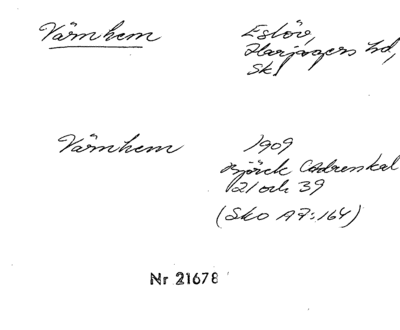 Värnhem
Eslöv,
Harjagers hd,
Sk.
Värnhem
1909
Björck Adresskal
21 och 39
(Sko A7:164)
Nr 21678